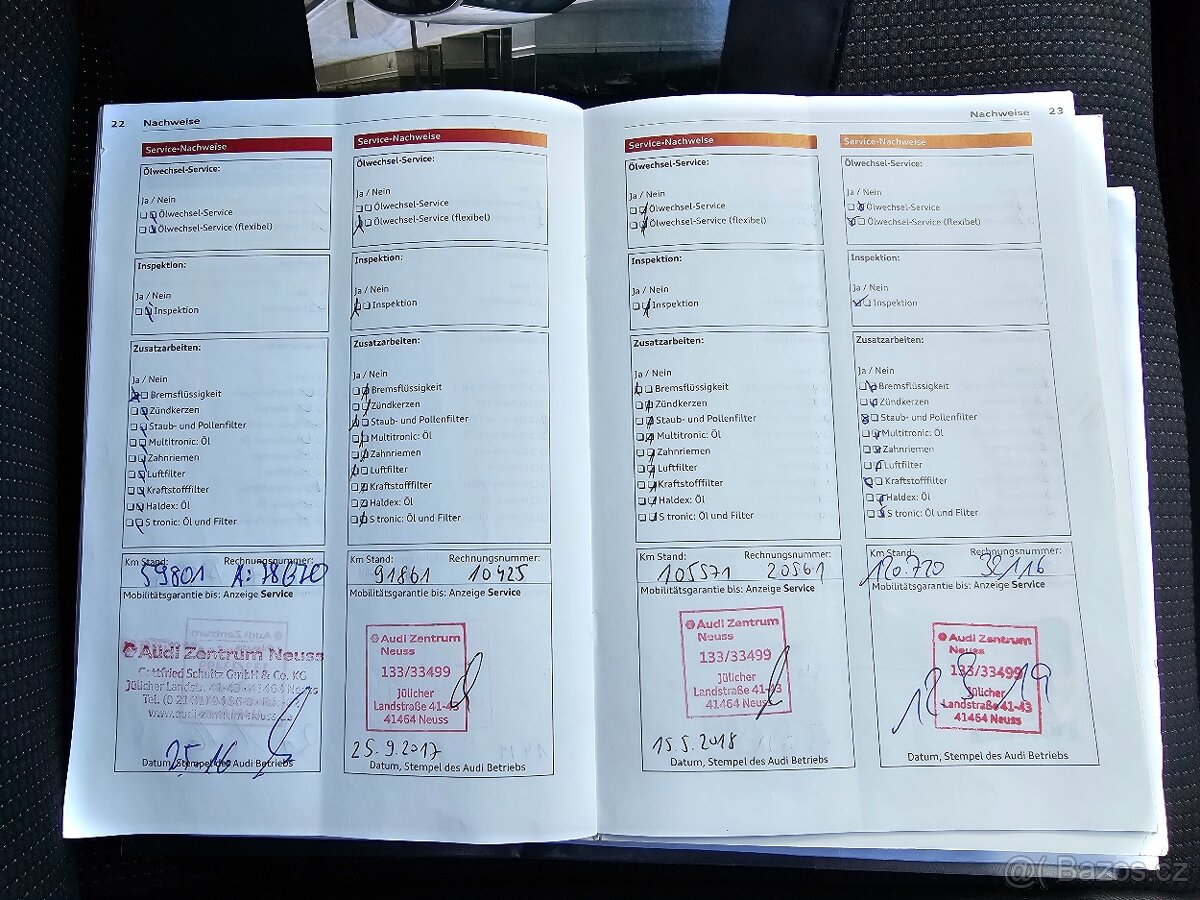 22 Nachweise
Service-Nachweise
Ölwechsel-Service:
Ja / Nein
Ölwechsel-Service
Ölwechsel-Service (flexibel)
Inspektion:
Ja / Nein
Inspektion
Zusatzarbeiten:
Ja / Nein
Bremsflüssigkeit
Zündkerzen
Staub- und Pollenfilter
Multitronic: Öl
Zahnriemen
Luftfilter
Kraftstofffilter
Haldex: Öl
S tronic: Öl und Filter
Km Stand: Rechnungsnummer:
59801
Mobilitätsgarantie bis: Anzeige Service
Audi Zentrum Neuss
Gottfried Schultz GmbH & Co. KG
Jülicher Landstr. 41-43 - 41464 Neuss
Datum, Stempel des Audi Betriebs
Service-Nachweise
Ölwechsel-Service:
Ja / Nein
Ölwechsel-Service
Ölwechsel-Service (flexibel)
Inspektion:
Ja / Nein
Inspektion
Zusatzarbeiten:
Ja / Nein
Bremsflüssigkeit
Zündkerzen
Staub- und Pollenfilter
Multitronic: Öl
Zahnriemen
Luftfilter
Kraftstofffilter
Haldex: Öl
S tronic: Öl und Filter
Km Stand: Rechnungsnummer:
91861 10425
Mobilitätsgarantie bis: Anzeige Service
Audi Zentrum
Neuss
133/33499
Jülicher
Landstraße 41-43
41464 Neuss
25.9.2017
Datum, Stempel des Audi Betriebs
Nachweise 23
Service-Nachweise
Ölwechsel-Service:
Ja / Nein
Ölwechsel-Service
Ölwechsel-Service (flexibel)
Inspektion:
Ja / Nein
Inspektion
Zusatzarbeiten:
Ja / Nein
Bremsflüssigkeit
Zündkerzen
Staub- und Pollenfilter
Multitronic: Öl
Zahnriemen
Luftfilter
Kraftstofffilter
Haldex: Öl
S tronic: Öl und Filter
Km Stand: Rechnungsnummer:
105571 20561
Mobilitätsgarantie bis: Anzeige Service
Audi Zentrum
Neuss
133/33499
Jülicher
Landstraße 41-43
41464 Neuss
15.5.2018
Datum, Stempel des Audi Betriebs
Service-Nachweise
Ölwechsel-Service:
Ja / Nein
Ölwechsel-Service
Ölwechsel-Service (flexibel)
Inspektion:
Ja / Nein
Inspektion
Zusatzarbeiten:
Ja / Nein
Bremsflüssigkeit
Zündkerzen
Staub- und Pollenfilter
Multitronic: Öl
Zahnriemen
Luftfilter
Kraftstofffilter
Haldex: Öl
S tronic: Öl und Filter
Km Stand: Rechnungsnummer:
120.720 32116
Mobilitätsgarantie bis: Anzeige Service
Audi Zentrum
Neuss
133/33499
Jülicher
Landstraße 41-43
41464 Neuss
Datum, Stempel des Audi Betriebs
Bazos.cz